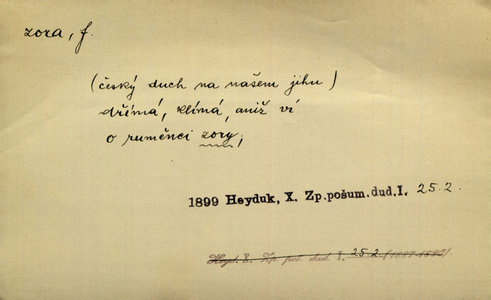 zora, f.
(český duch na našem jihu)
dřímá, klímá, aniž ví
o ruměnci zory;
1899 Heyduk, X. Zp.pošum.dud.I. 25.2.
Heyd. X. Zp. poš. dud. I. 25.2 (1899-1890).